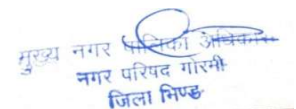 मुख्य नगर पालिका अधिकारी
नगर परिषद गोरमी
जिला भिण्ड